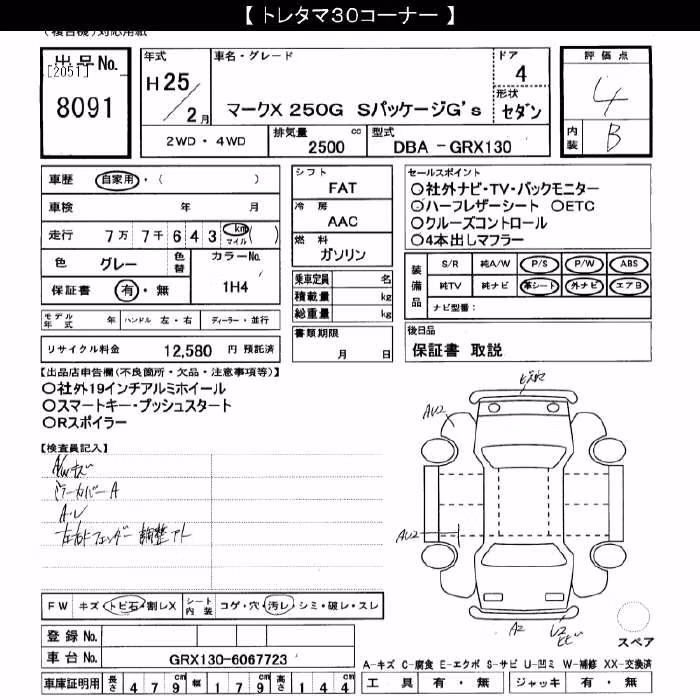 【 トレタマ30コーナー 】
(複合機)対応用紙
出品No.
[2051]
8091
年式
H25/2月
車名・グレード
マークX 250G SパッケージG's
ドア
4
形状
セダン
評価点
4
内装
B
2WD・4WD
排気量 cc
2500
型式
DBA - GRX130
車歴 自家用・( )
車検 年 月
走行 7万 7千 6 4 3 km マイル ( )
色 グレー
色替
カラーNo.
1H4
保証書 有・無
シフト
FAT
冷房
AAC
燃料
ガソリン
乗車定員 名
積載量 kg
総重量 kg
書類期限
月 日
セールスポイント
○社外ナビ・TV・バックモニター
○ハーフレザーシート ○ETC
○クルーズコントロール
○4本出しマフラー
装備品
S/R 純A/W P/S P/W ABS
純TV 純ナビ 革シート 外ナビ エアB
ナビ型番:
後日品
保証書 取説
モデル年式 年 ハンドル 左・右 ディーラー・並行
リサイクル料金 12,580 円 預託済
【出品店申告欄(不良箇所・欠品・注意事項等)】
○社外19インチアルミホイール
○スマートキー・プッシュスタート
○Rスポイラー
【検査員記入】
A/Wキズ
ドラーカバーA
A・U
左右Fフェンダー調整アト
AU2
AU2
A2
U2
FW キズ・トビ石・割レX
シート内装 コゲ・穴・汚レ・シミ・破レ・スレ
スペア
登録No.
車台No. GRX130-6067723
A-キズ C-腐食 E-エクボ S-サビ U-凹ミ W-補修 XX-交換済
車庫証明用 長さ 4 7 9 幅 1 7 9 高さ 1 4 4
工具 有・無 ジャッキ 有・無